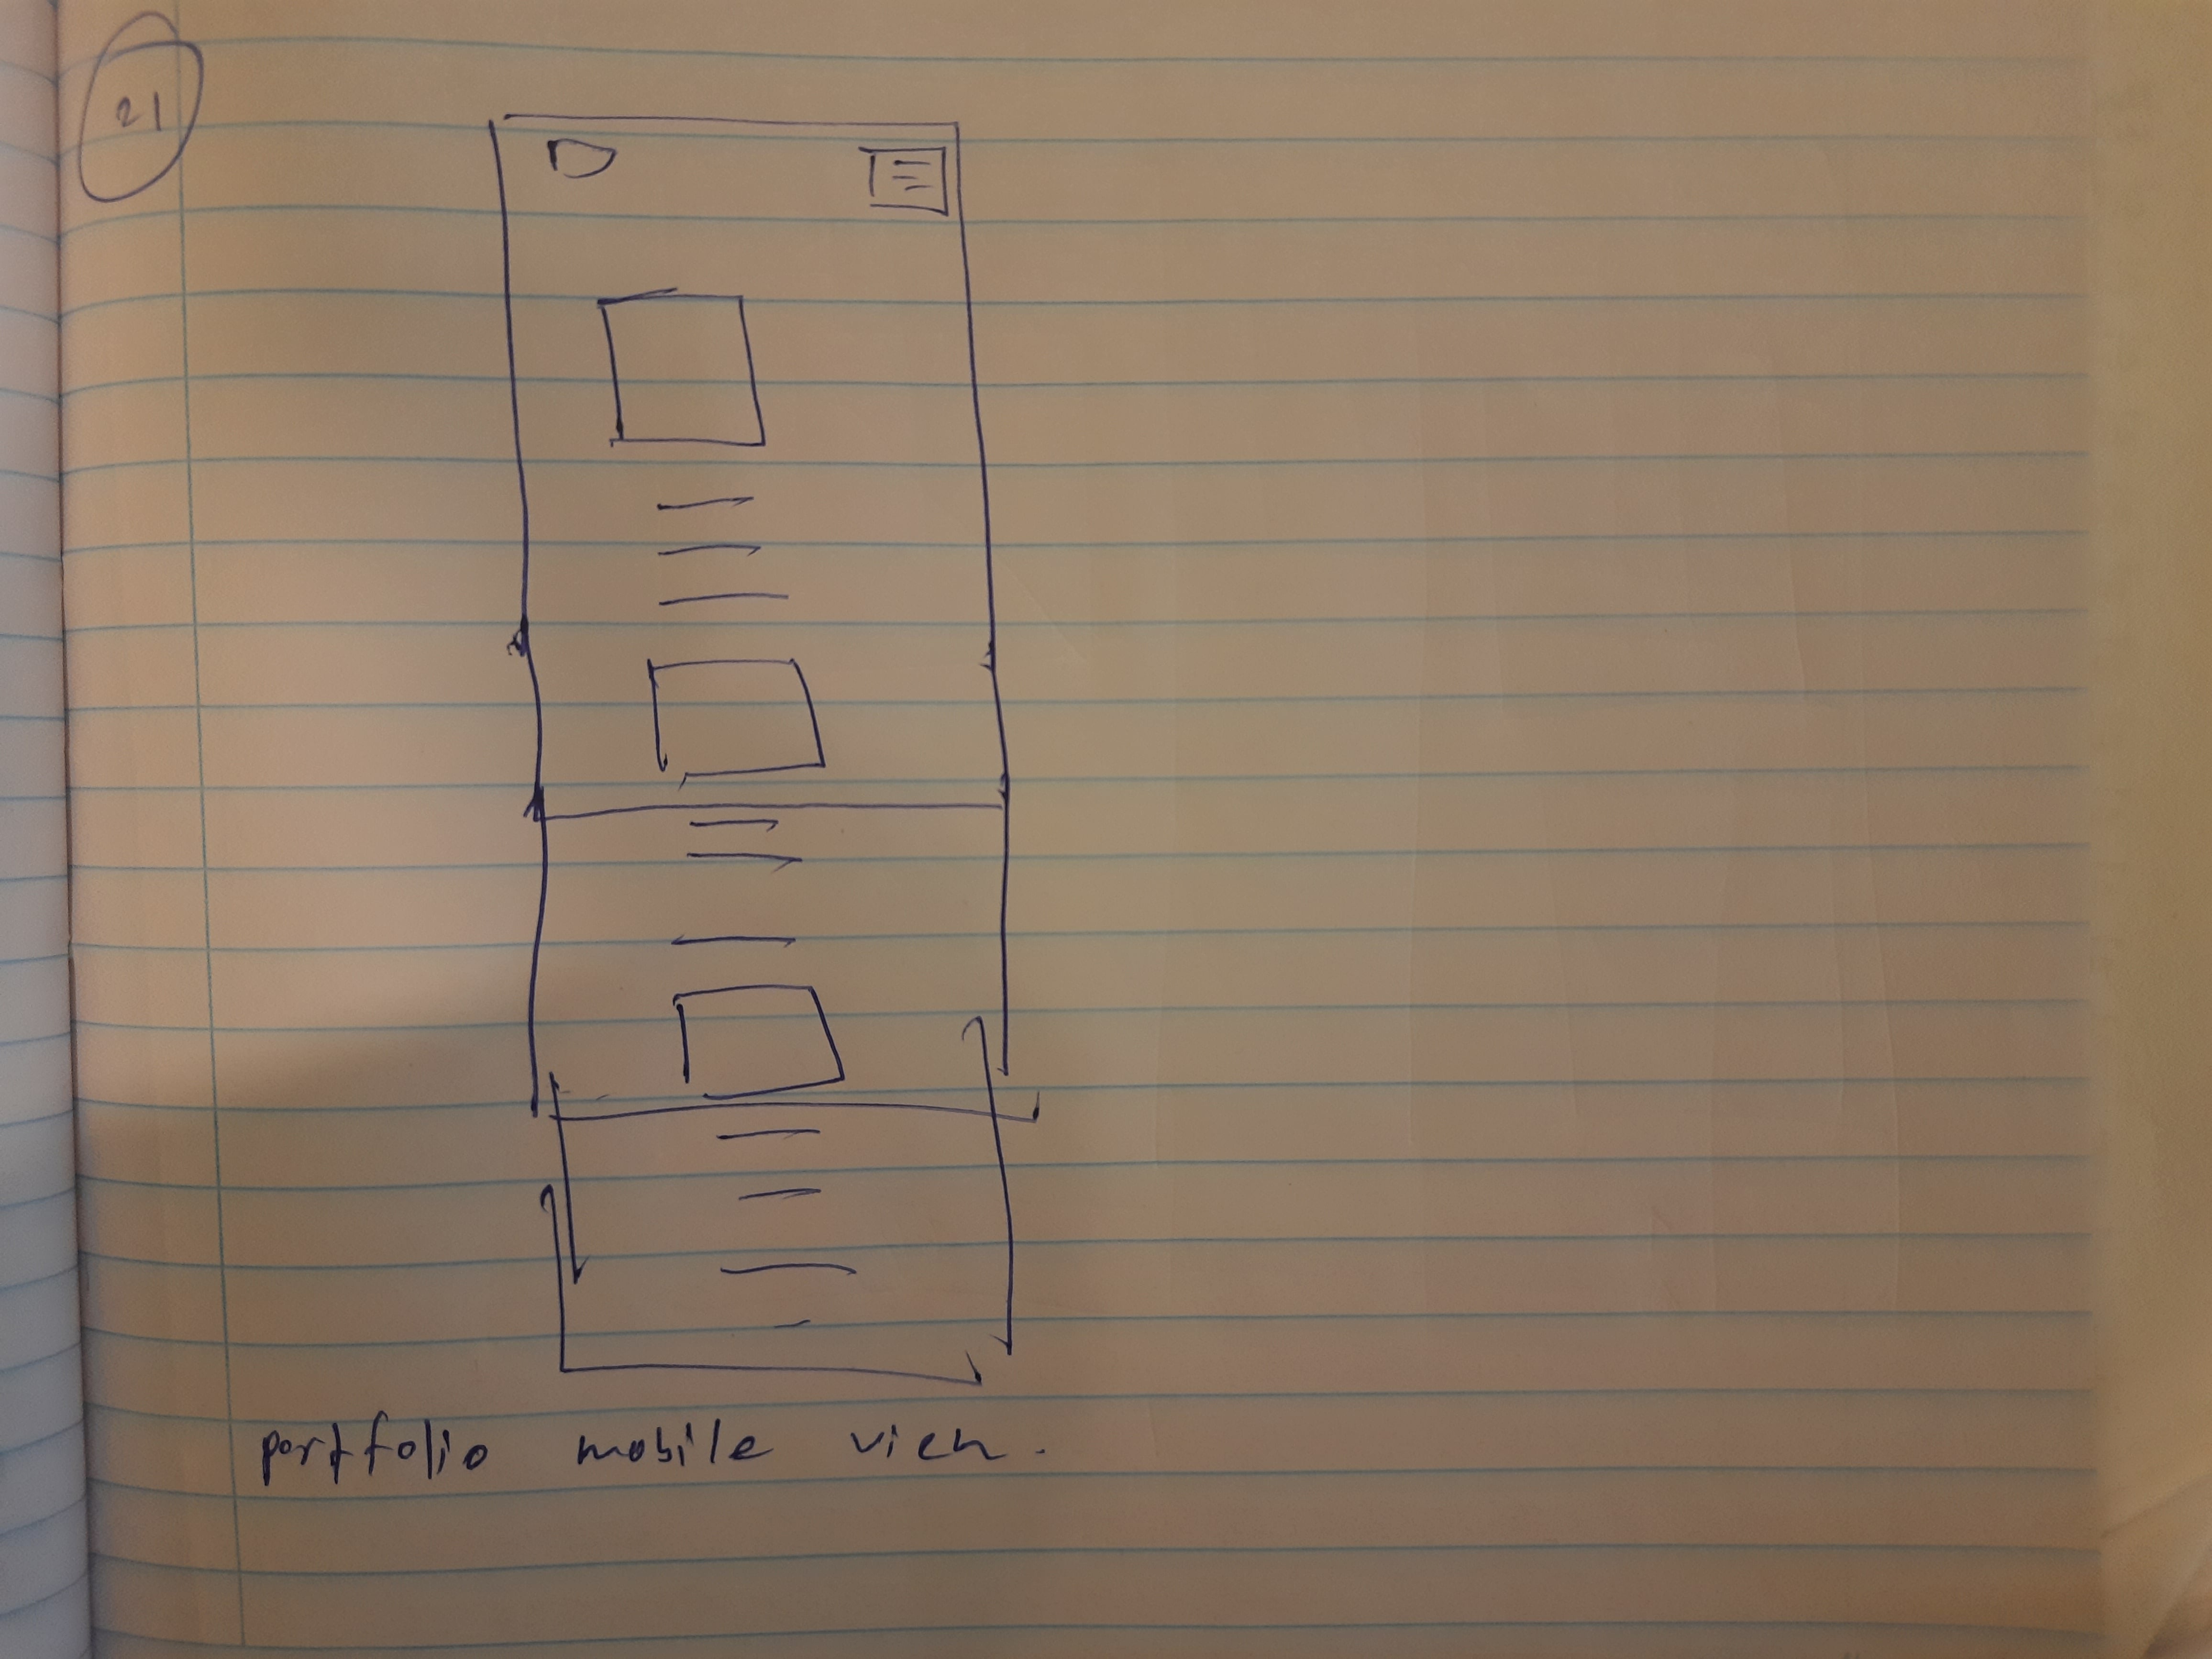 21
D
portfolio mobile view.